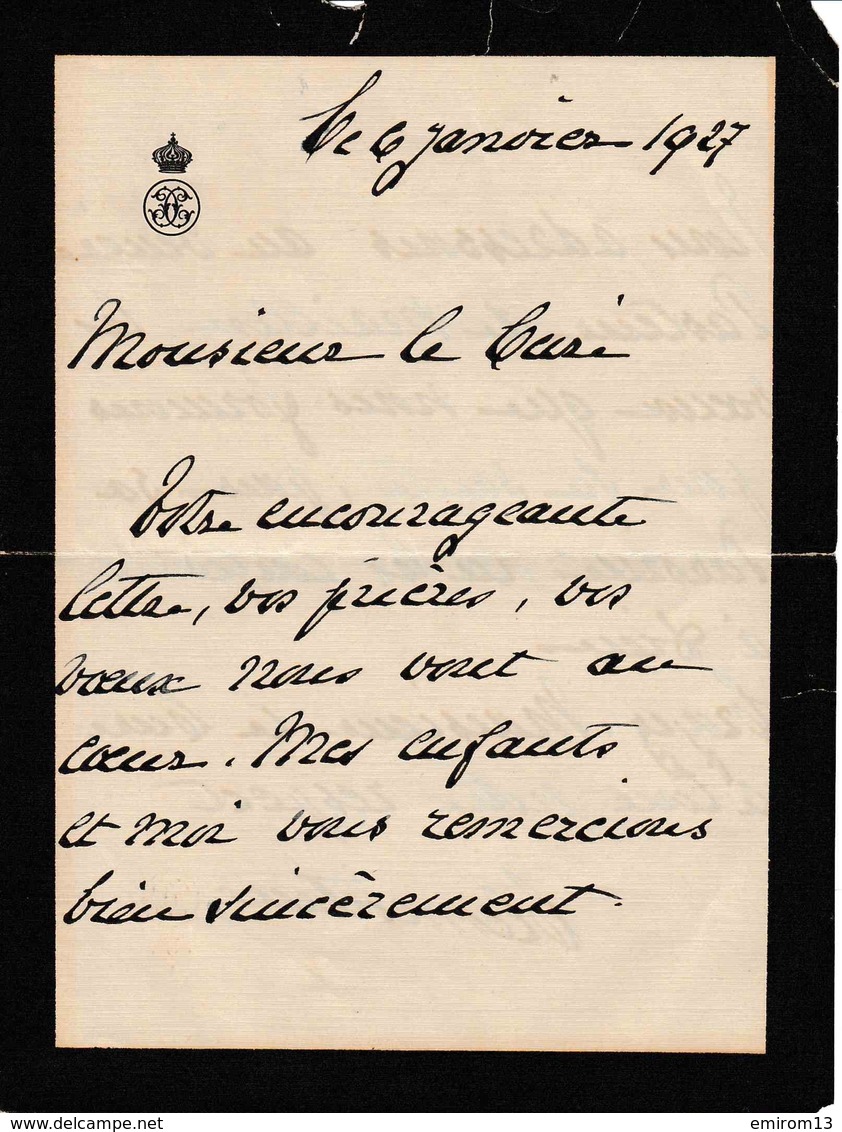 Le 6 janvier 1927
Monsieur le Curé
Votre encourageante
lettre, vos prières, vos
vœux nous vont au
cœur. Mes enfants
et moi vous remercions
bien sincèrement.
www.delcampe.net
emirom13